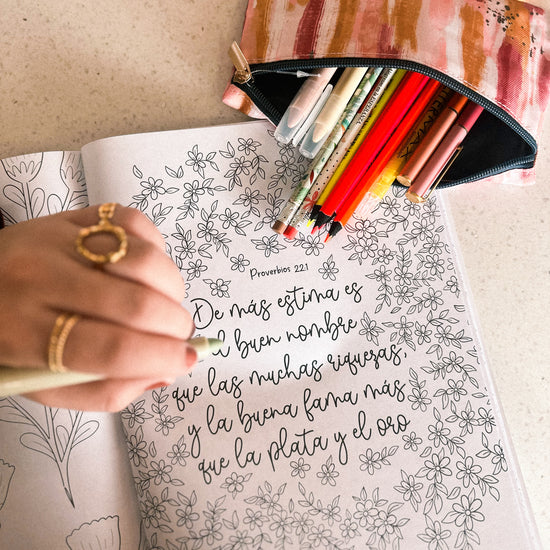 Proverbios 22:1
De más estima es
el buen nombre
que las muchas riquezas,
y la buena fama más
que la plata y el oro